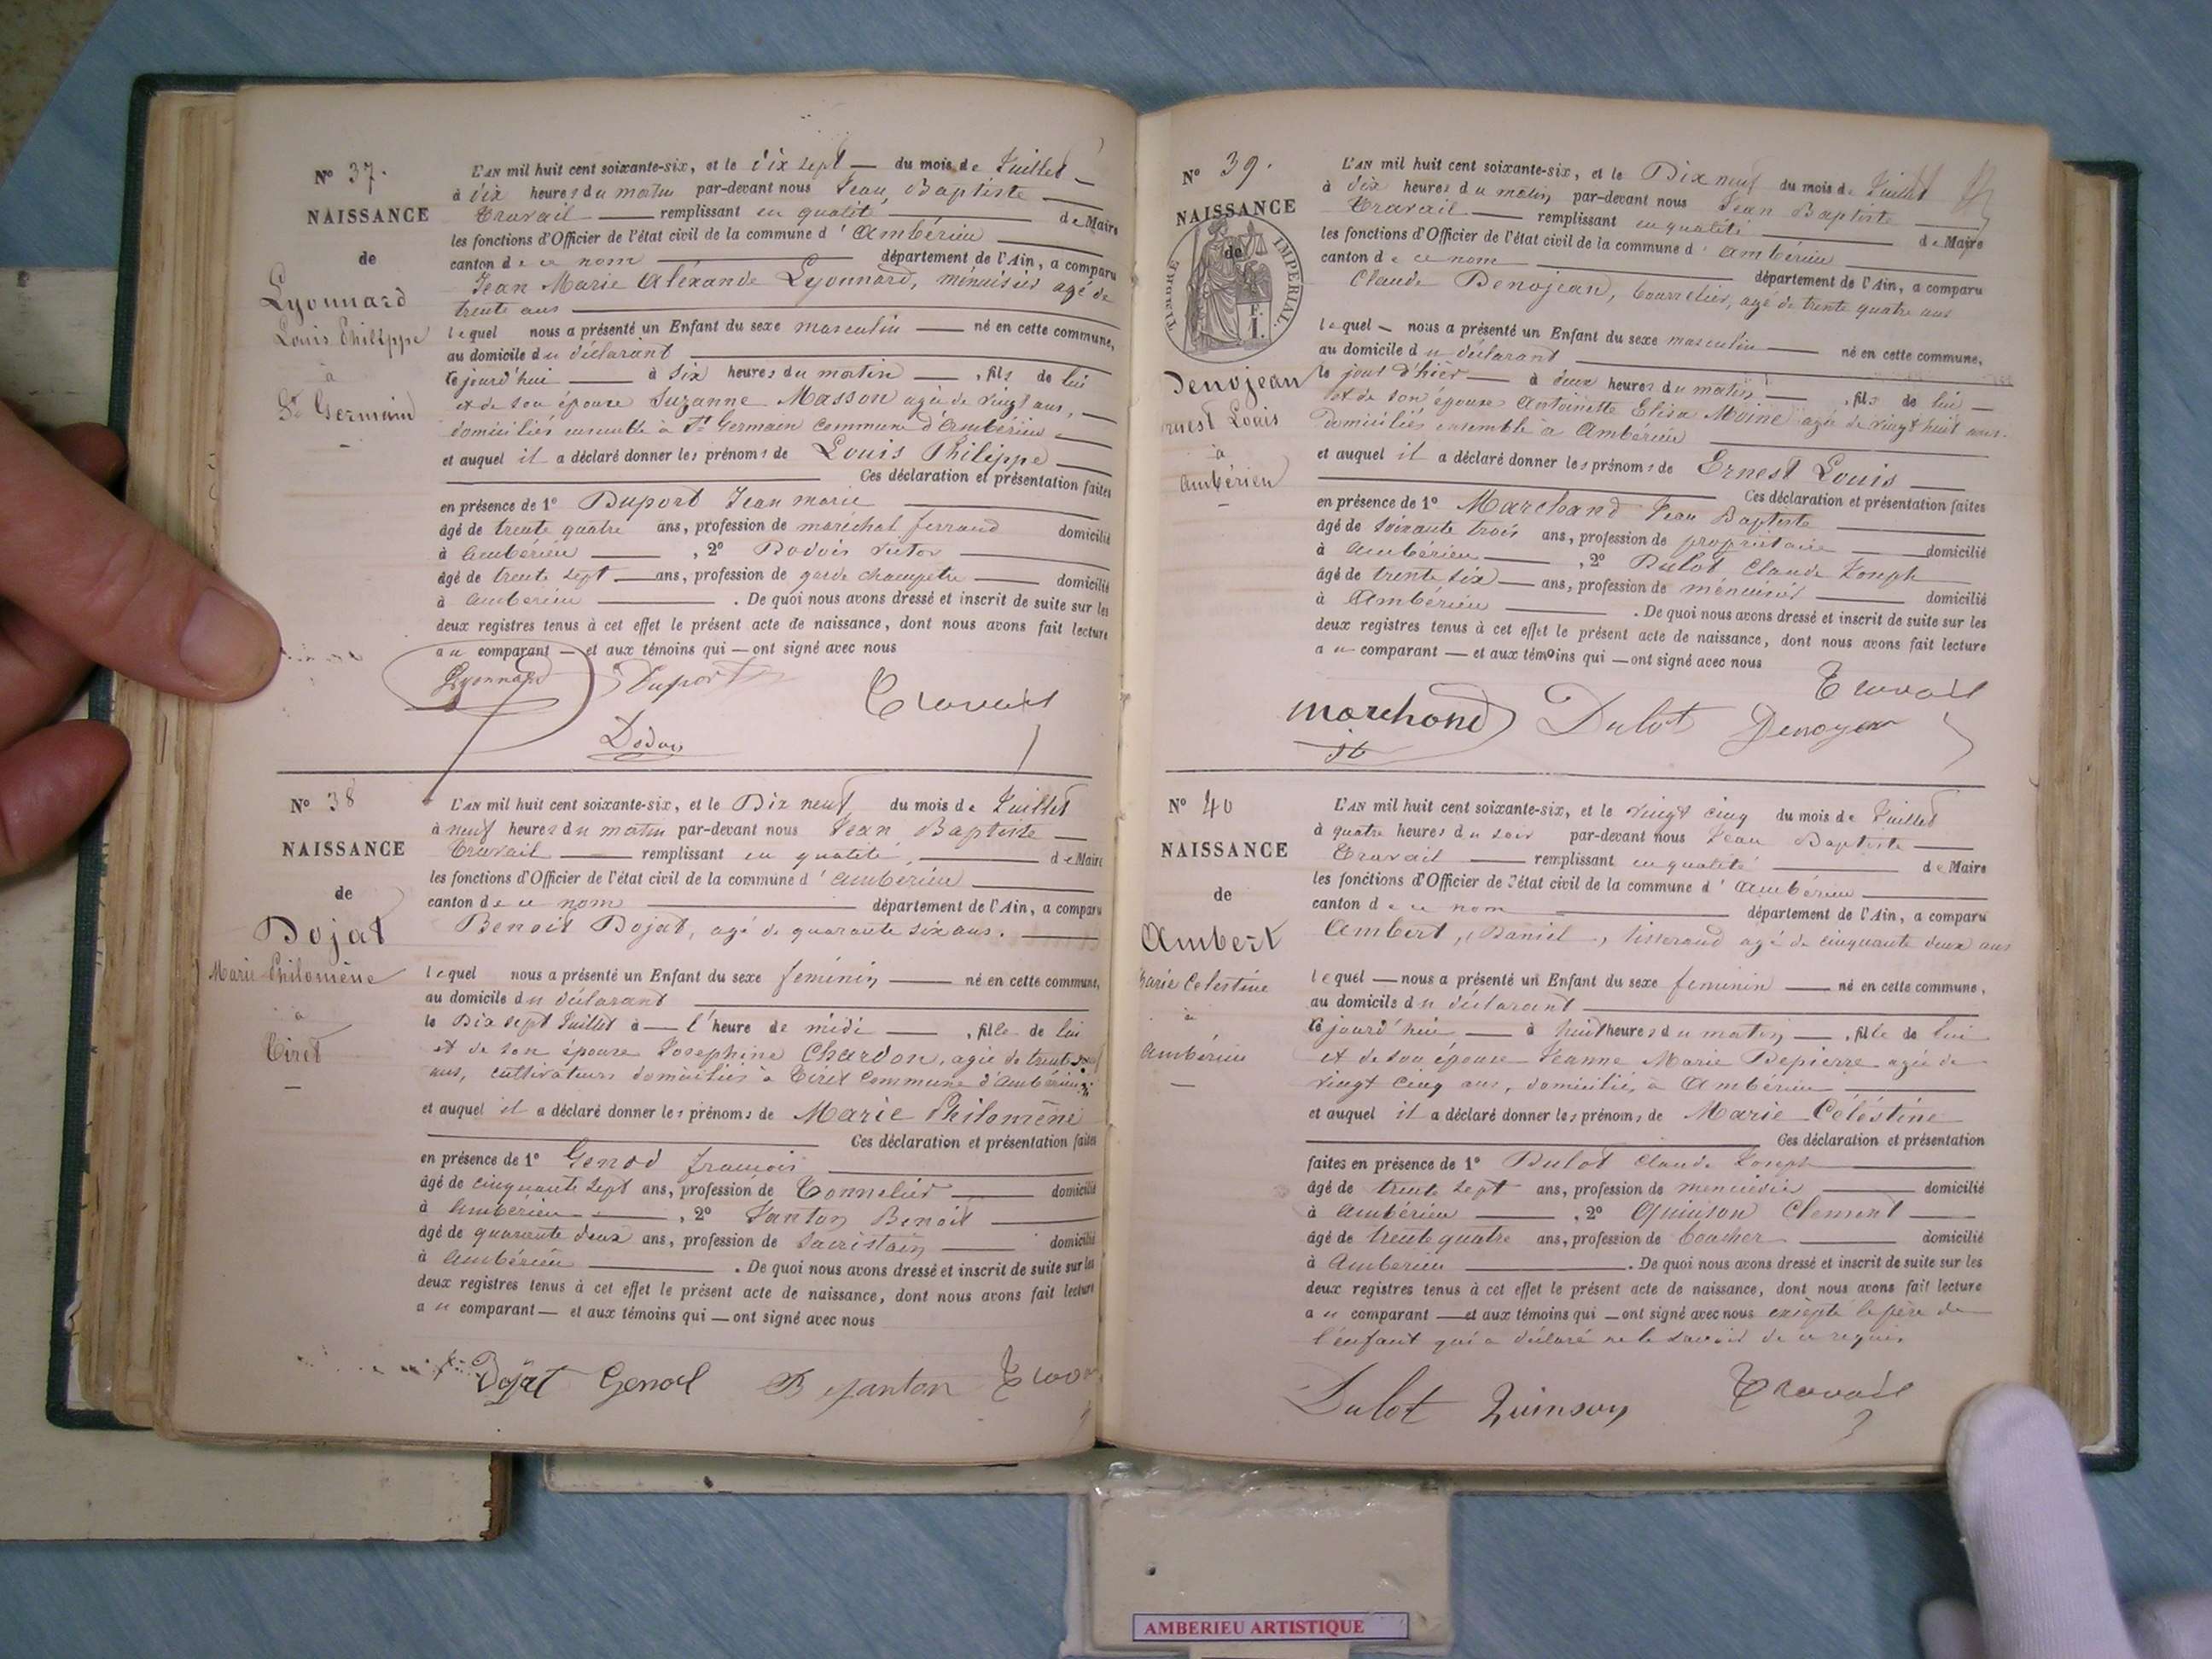 N° 37.
NAISSANCE
de
Lyonnard
Louis Philippe
à
St Germain
L'AN mil huit cent soixante-six, et le dix sept du mois de Juillet
à dix heures du matin par-devant nous Jean Baptiste
Travail remplissant en qualité de Maire
les fonctions d'Officier de l'état civil de la commune d'Ambérieu
canton de ce nom département de l'Ain, a comparu
Jean Marie Aléxandre Lyonnard, ménuisier agé de
trente ans
lequel nous a présenté un Enfant du sexe masculin né en cette commune,
au domicile du déclarant
cejourd'hui à six heures du matin, fils de lui
et de son épouse Suzanne Masson agée de vingt ans,
domiciliés ensemble à St Germain commune d'Ambérieu
et auquel il a déclaré donner les prénoms de Louis Philippe
Ces déclaration et présentation faites
en présence de 1° Duport Jean marie
âgé de trente quatre ans, profession de maréchal ferrand domicilié
à Ambérieu, 2° Dodois
âgé de trente sept ans, profession de garde champetre domicilié
à Ambérieu. De quoi nous avons dressé et inscrit de suite sur les
deux registres tenus à cet effet le présent acte de naissance, dont nous avons fait lecture
au comparant et aux témoins qui ont signé avec nous
Lyonnard Duport Travail
N° 38
NAISSANCE
de
Dojat
Marie Philomène
à
Tiret
L'AN mil huit cent soixante-six, et le Dix neuf du mois de Juillet
à neuf heures du matin par-devant nous Jean Baptiste
Travail remplissant en qualité de Maire
les fonctions d'Officier de l'état civil de la commune d'Ambérieu
canton de ce nom département de l'Ain, a comparu
Benoit Dojat, agé de quarante six ans.
lequel nous a présenté un Enfant du sexe feminin né en cette commune,
au domicile du déclarant
le Dix sept Juillet à l'heure de midi, fille de lui
et de son épouse Josephine Chardon, agée de trente
ans, cultivateurs domiciliés à Tiret commune d'Ambérieu
et auquel il a déclaré donner les prénoms de Marie Philomène
Ces déclaration et présentation faites
en présence de 1° Genod francois
âgé de cinquante sept ans, profession de Tonnelier domicilié
à Ambérieu, 2° Janton Benoit
âgé de quarante deux ans, profession de Sacristain domicilié
à Ambérieu. De quoi nous avons dressé et inscrit de suite sur les
deux registres tenus à cet effet le présent acte de naissance, dont nous avons fait lecture
au comparant et aux témoins qui ont signé avec nous
Dojat Genod B Janton
N° 39.
NAISSANCE
de
TIMBRE IMPERIAL.
Denojean
Ernest Louis
à
Ambérieu
L'AN mil huit cent soixante-six, et le Dix neuf du mois de Juillet
à dix heures du matin par-devant nous Jean Baptiste
Travail remplissant en qualité de Maire
les fonctions d'Officier de l'état civil de la commune d'Ambérieu
canton de ce nom département de l'Ain, a comparu
Claude Denojean, bourrelier, agé de trente quatre ans
lequel nous a présenté un Enfant du sexe masculin né en cette commune,
au domicile du déclarant
le jour d'hier à deux heures du matin, fils de lui
et de son épouse Antoinette Elisa Moine agée de vingt huit ans.
Domiciliés ensemble à Ambérieu
et auquel il a déclaré donner les prénoms de Ernest Louis
Ces déclaration et présentation faites
en présence de 1° Marchand Jean Baptiste
âgé de soixante trois ans, profession de propriétaire domicilié
à Ambérieu, 2° Dulot Claude Joseph
âgé de trente six ans, profession de ménuisier domicilié
à Ambérieu. De quoi nous avons dressé et inscrit de suite sur les
deux registres tenus à cet effet le présent acte de naissance, dont nous avons fait lecture
au comparant et aux témoins qui ont signé avec nous
Travail
marchand Dulot
N° 40
NAISSANCE
de
Ambert
Marie Celestine
à
Ambérieu
L'AN mil huit cent soixante-six, et le vingt cinq du mois de Juillet
à quatre heures du soir par-devant nous Jean Baptiste
Travail remplissant en qualité de Maire
les fonctions d'Officier de l'état civil de la commune d'Ambérieu
canton de ce nom département de l'Ain, a comparu
Ambert, Daniel, tisserand agé de cinquante deux ans
lequel nous a présenté un Enfant du sexe feminin né en cette commune,
au domicile du déclarant
cejourd'hui à huit heures du matin, fille de lui
et de son épouse Jeanne Marie Depierre agée de
vingt cinq ans, domiciliés à Ambérieu
et auquel il a déclaré donner les prénoms de Marie Céléstine
Ces déclaration et présentation
faites en présence de 1° Dulot Claude Joseph
âgé de trente sept ans, profession de menuisier domicilié
à Ambérieu, 2° Quinson Clement
âgé de trente quatre ans, profession de boucher domicilié
à Ambérieu. De quoi nous avons dressé et inscrit de suite sur les
deux registres tenus à cet effet le présent acte de naissance, dont nous avons fait lecture
au comparant et aux témoins qui ont signé avec nous excepté le père de
l'enfant qui a déclaré ne le savoir de ce requis
Dulot Quinson Travail
AMBERIEU ARTISTIQUE